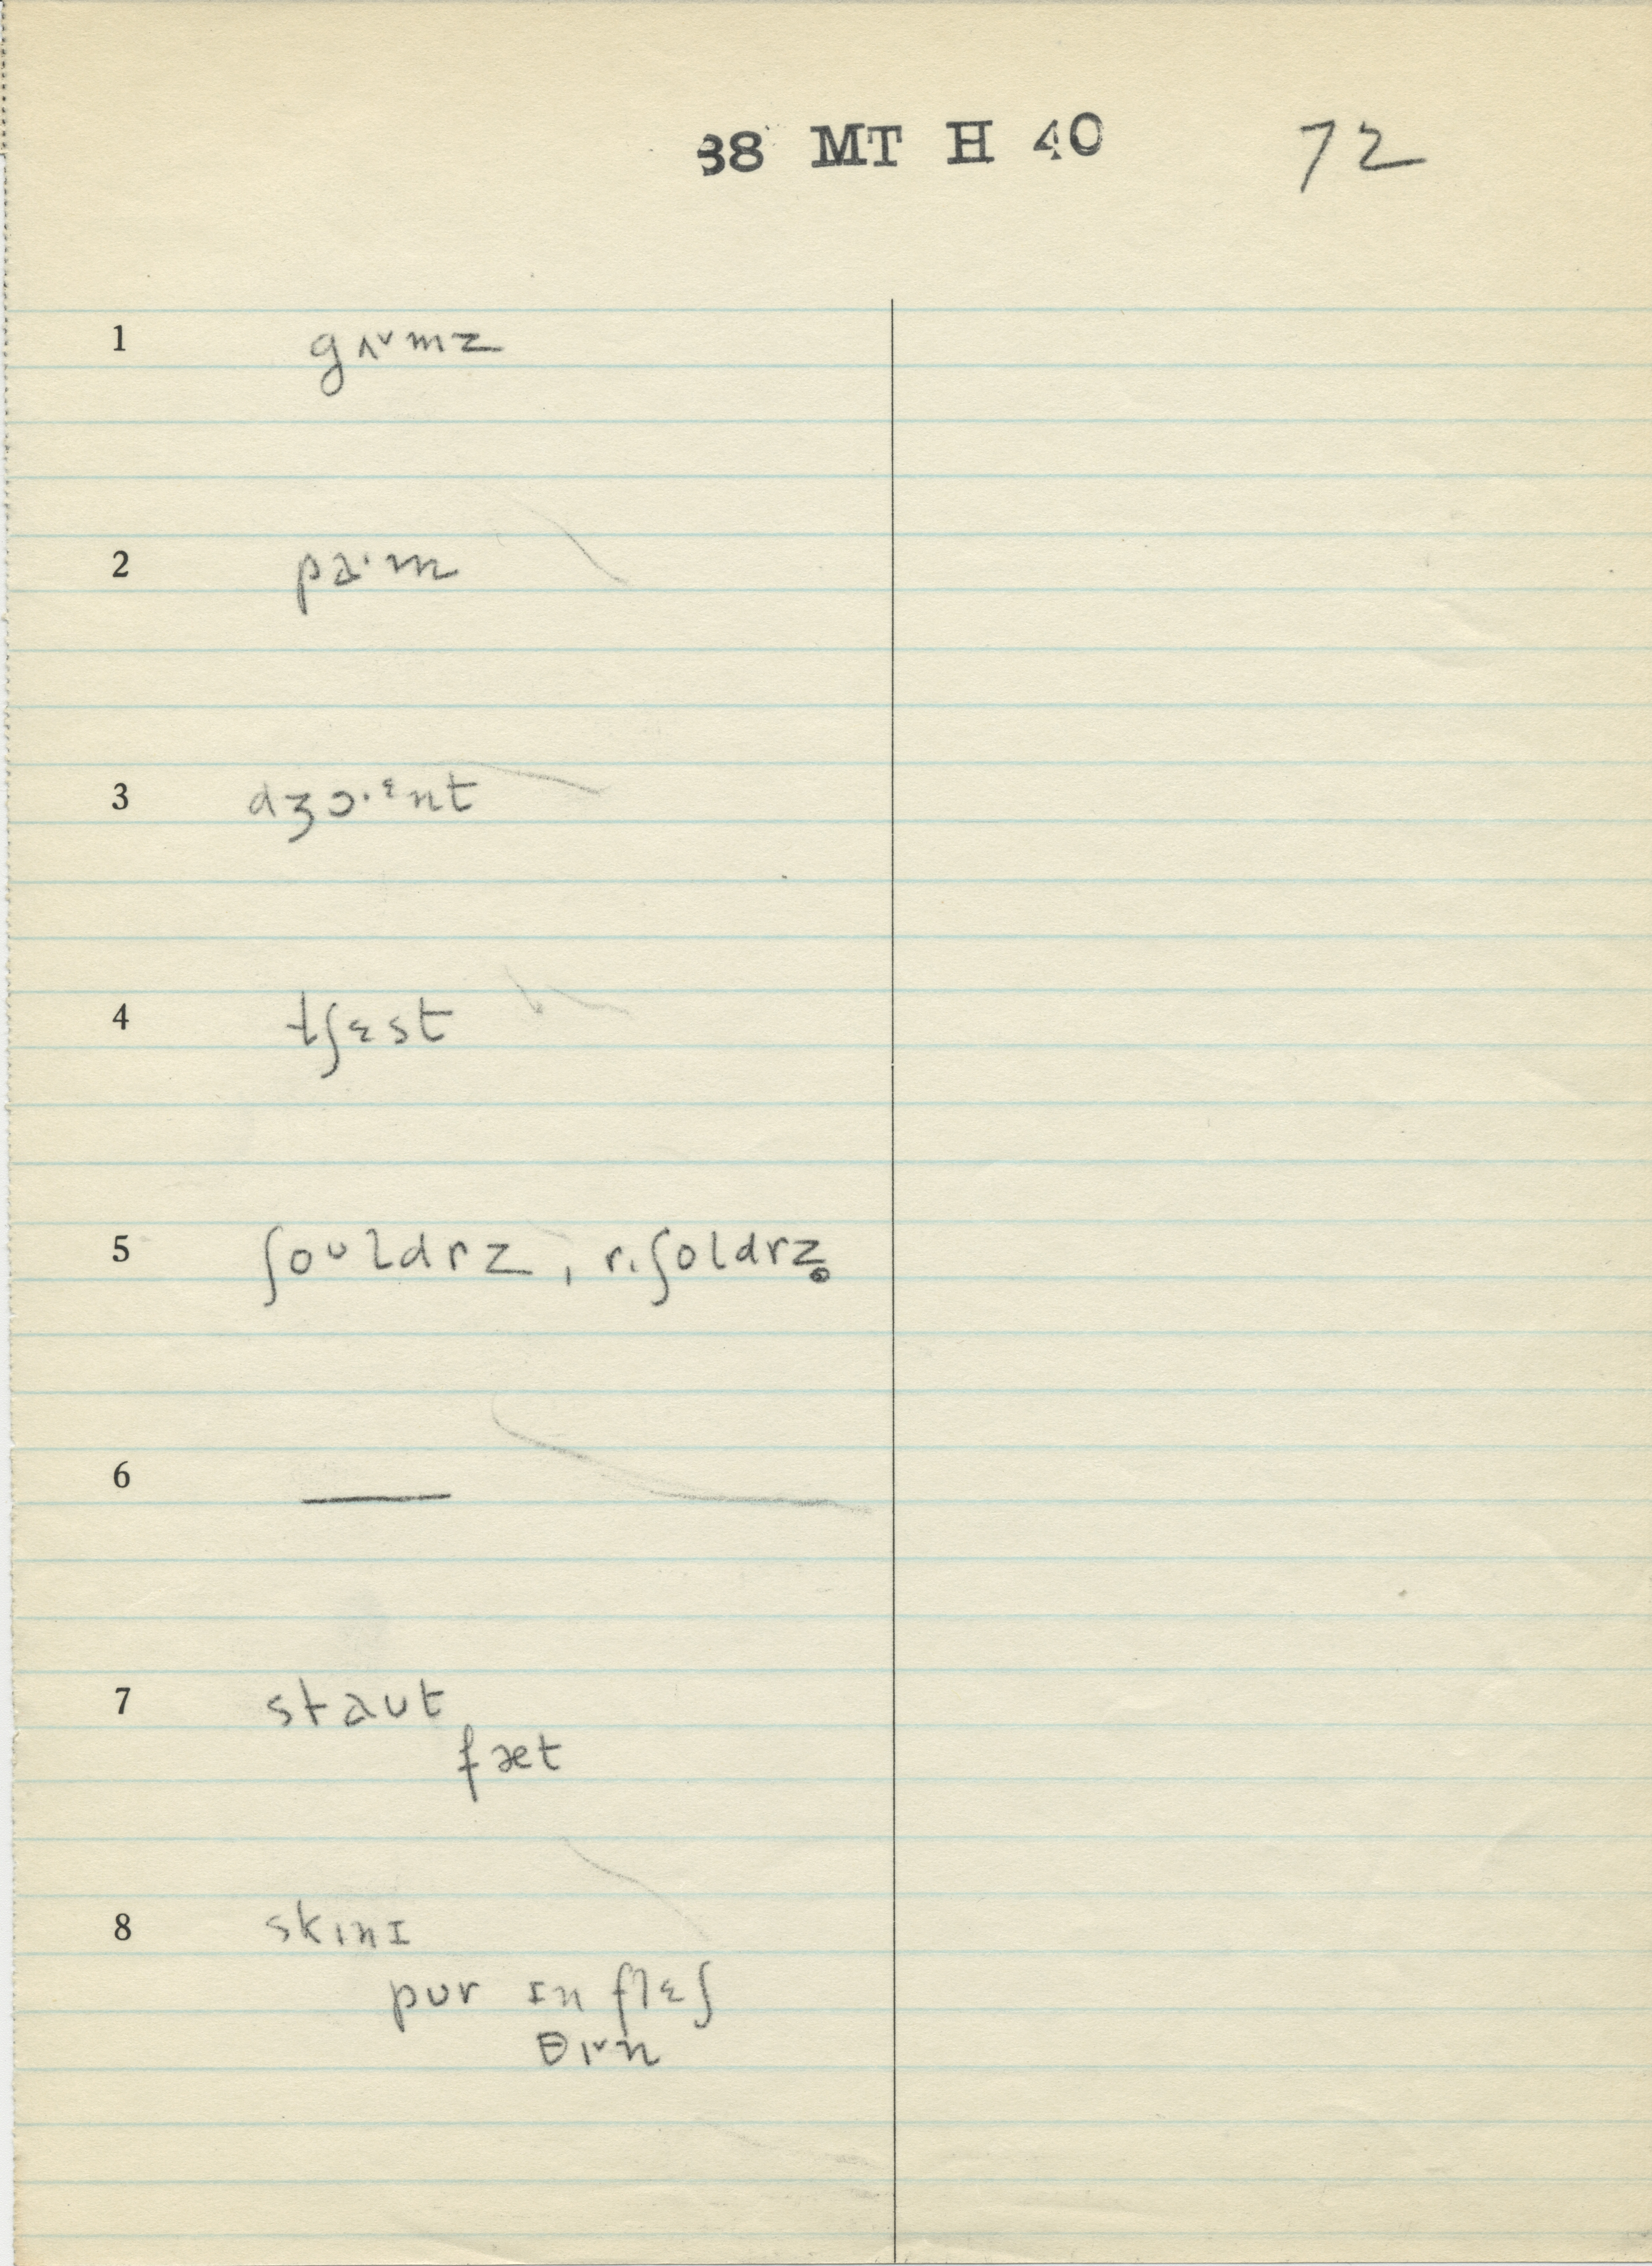 38 MT H 40 72
1 gʌ˅mz
2 pa·m
3 dʒɔ·ᵋnt
4 tʃɛst
5 ʃoᵘldrz, r. ʃoldrz̥
6 —
7 staut
fæt
8 skɪnɪ
pur ɪn flɛʃ
θɪ˅n